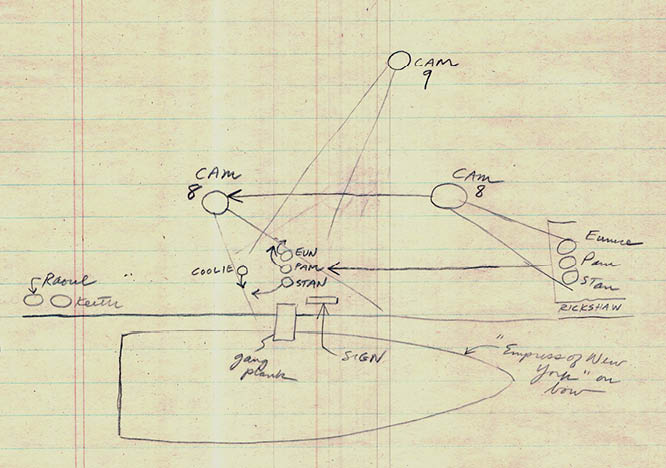 CAM
9
CAM
8
CAM
8
Eunice
Pam
Stan
RICKSHAW
EUN
PAM
STAN
COOLIE
Raoul
Keith
gang
plank
SIGN
"Empress of New
York" on
bow